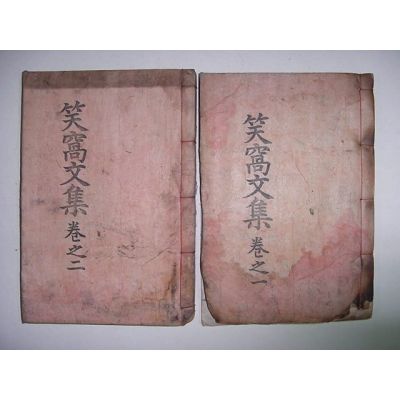 笑窩文集 卷之一
笑窩文集 卷之二